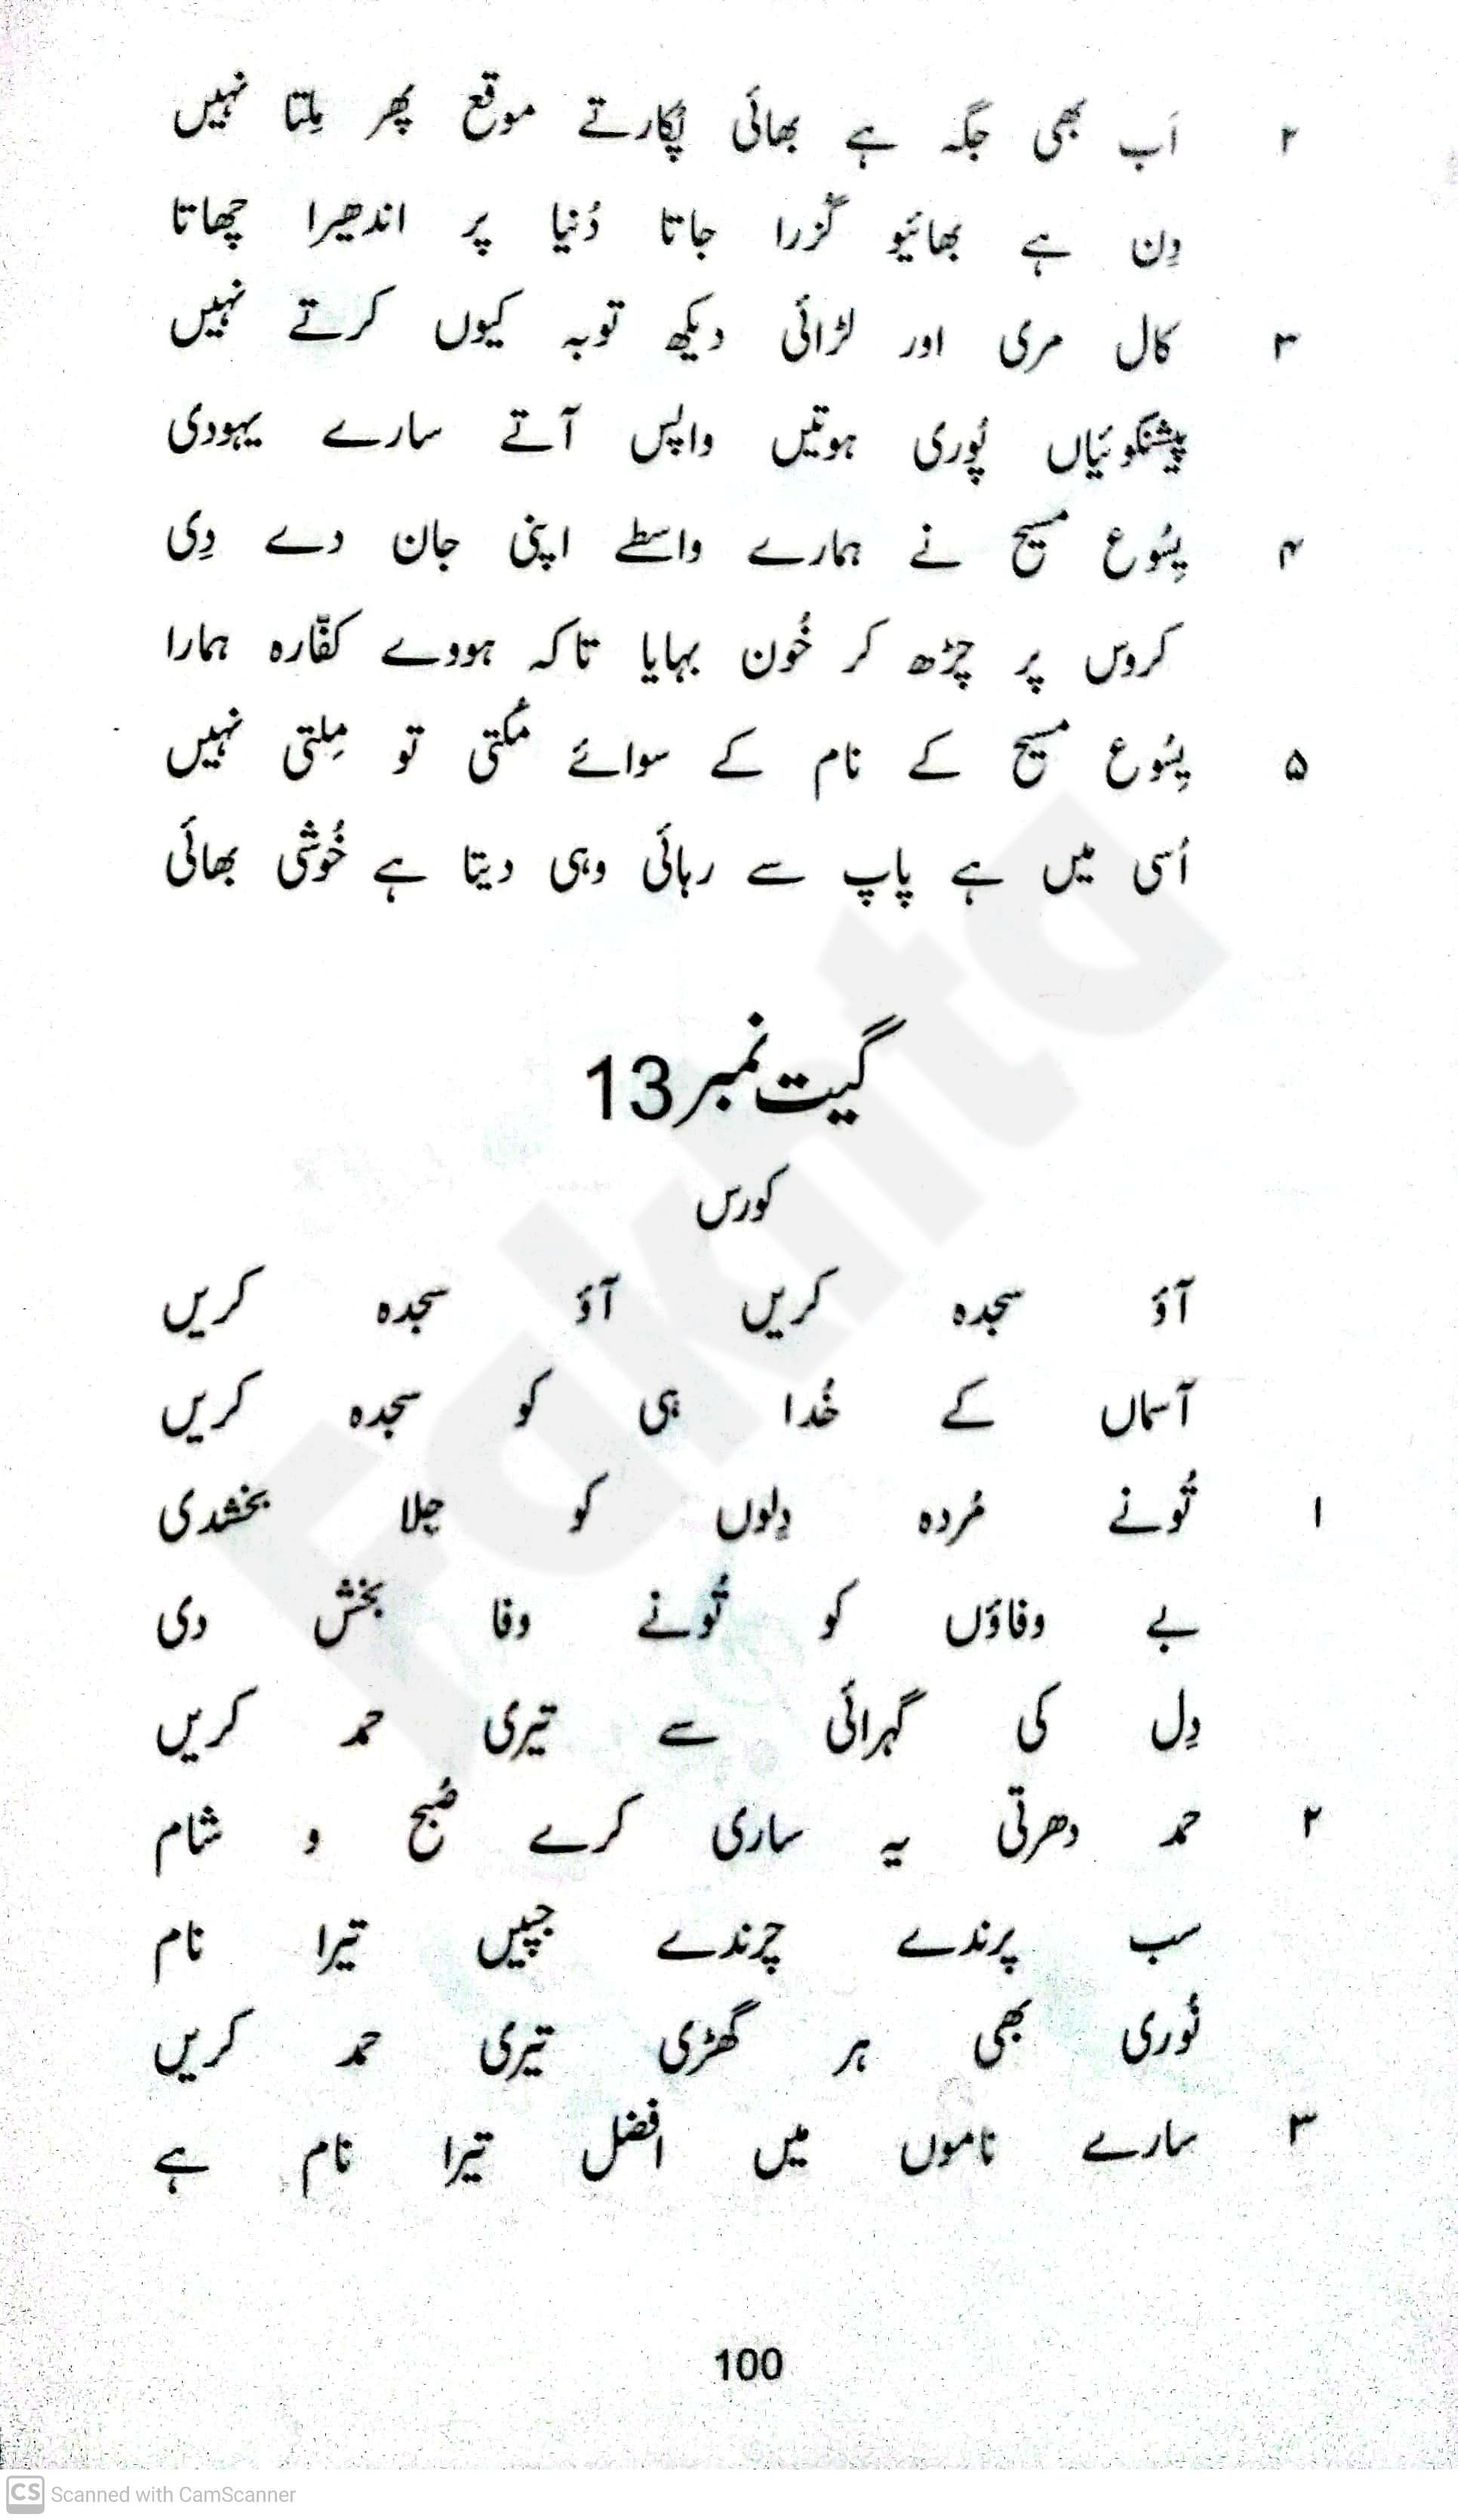 ۲ اَب بھی جگہ ہے بھائی پُکارتے موقع پھر مِلتا نہیں
دِن ہے بھائیو گُزرا جاتا دُنیا پر اندھیرا چھاتا
۳ کال مری اور لڑائی دیکھ توبہ کیوں کرتے نہیں
پیشنگوئیاں پُوری ہوتیں واپس آتے سارے یہودی
۴ یِسُوع مسیح نے ہمارے واسطے اپنی جان دے دِی
کروس پر چڑھ کر خُون بہایا تاکہ ہووے کفّارہ ہمارا
۵ یِسُوع مسیح کے نام کے سوائے مُکتی تو مِلتی نہیں
اُسی میں ہے پاپ سے رہائی وہی دیتا ہے خُوشی بھائی
گیت نمبر 13
کورس
آؤ سجدہ کریں آؤ سجدہ کریں
آسماں کے خُدا ہی کو سجدہ کریں
۱ تُونے مُردہ دِلوں کو جِلا بخشدی
بے وفاؤں کو تُونے وفا بخش دی
دِل کی گہرائی سے تیری حمد کریں
۲ حمد دھرتی یہ ساری کرے صُبح و شام
سب پرندے چرندے جپیں تیرا نام
نُوری بھی ہر گھڑی تیری حمد کریں
۳ سارے ناموں میں افضل تیرا نام ہے
100
Fakhta
CS Scanned with CamScanner